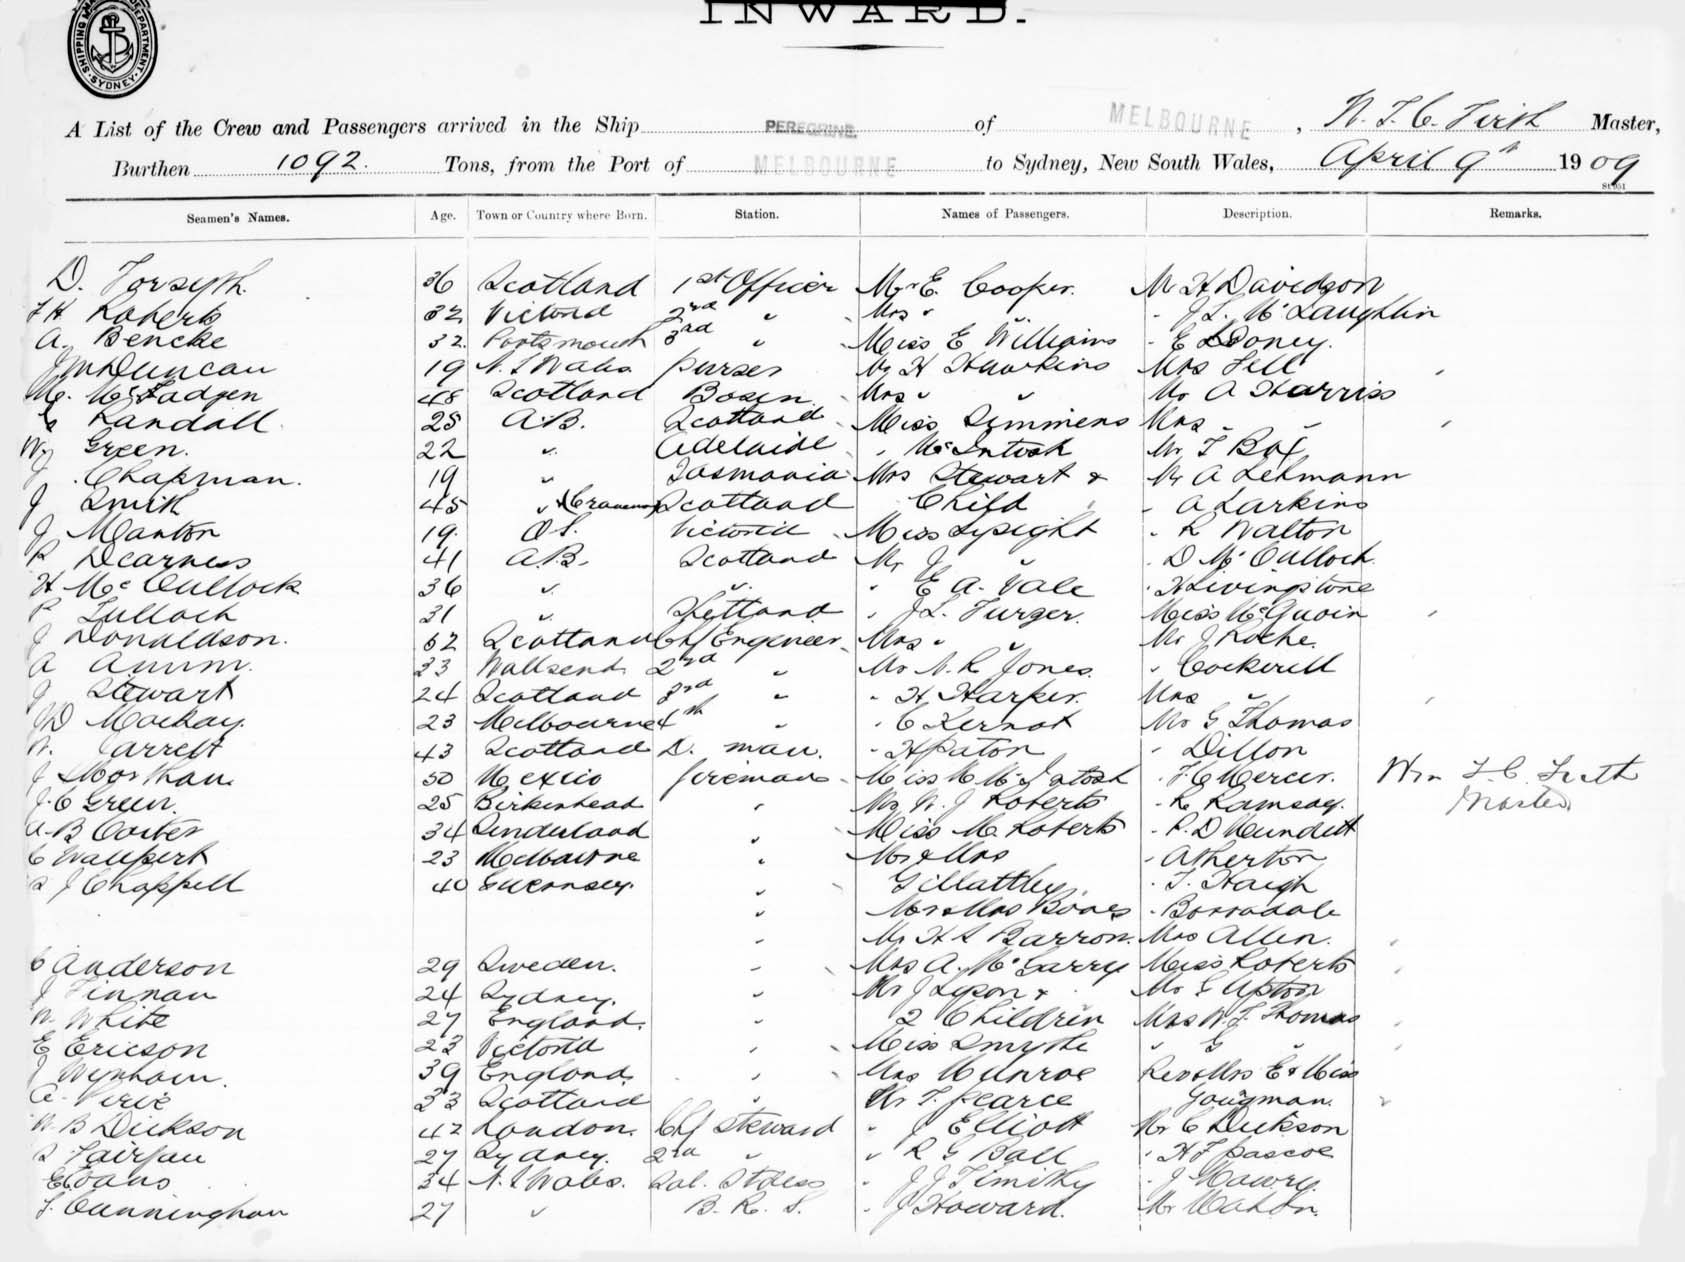 INWARD.
SHIPPING MASTER'S DEPARTMENT. SYDNEY
A List of the Crew and Passengers arrived in the Ship PEREGRINE. of MELBOURNE, W. F. C. Firth Master,
Burthen 1092. Tons, from the Port of MELBOURNE to Sydney, New South Wales, April 9th 1909
Seamen's Names. Age. Town or Country where Born. Station. Names of Passengers. Description. Remarks.
D. Forsyth. 36 Scotland 1st Officer Mr E. Cooper. Mr H Davidson
F H Roberts 32 Victoria 2nd " Mrs " " " J. L. McLaughlin
A. Bencke 32. Portsmouth 3rd " Miss E Williams " E Looney.
J M Duncan 19 N. S Wales purser Mr H Hawkins Mrs Fell
McFadgen 48 Scotland Bosen Mrs " " Mr A Harriss
Randall 25 A.B. Scotland Miss Simmens Mrs " "
Wm Green. 22 " Adelaide " McIntosh Mr F Box
J. Chapman. 19 " Tasmania Mrs Stewart & Mr A Lehmann
J Smith 45 " Scotland Child " A Larkins
J Manton 19. O S. Victoria Miss Lysight " R Walton
R Dearness 41 A.B. Scotland Mr J " " D McCulloch.
H McCullock 36 " " " E A. Vale " H Livingstone
P Tulloch 31 " Shetland " J L. Turger. Miss McQuoin
J Donaldson. 52 Scotland Chf Engineer Mrs " " Mr J Roche.
A 33 Wallsend 2nd " Mr N. R Jones. " Cockerill
J Stewart 24 Scotland 3rd " " H Harper. Mrs "
J D Mackay. 23 Melbourne 4th " " C Kernot Mr G Thomas
W. Jarrett 43 Scotland D. man. " H Paton " Dillon
J 50 Mexico fireman Miss M McIntosh " F C Mercer. Wm F. C. Firth
J. C Green. 25 Birkenhead " Mr W. J Roberts " R Ramsay. Master
A. B Carter 34 Sunderland " Miss M. Roberts " R. D Mundett
C Waupert 23 Melbourne " Mr & Mrs " Atherton
S J Chappell 40 Guernsey. " G Mattley. " F. Haigh
" Mr & Mrs Boaes " Borradale
" Mr H S Barron. Mrs Allen.
C Anderson 29 Sweden. " Mrs A. McGarry Miss Roberts
J Finnan 24 Sydney. " Mr J Lyson & Mr G Upton
W. White 27 England. " 2 Children Mrs W. J. Thomas
E Ericson 23 Victoria " Miss Smythe " G "
J Wynham. 39 England. " Mrs Munroe Rev & Mrs E & Miss
33 Scotland " Mr T. Pearce Gougman.
W. B Dickson 42 London. Chf Steward " J Elliott Mr C Dickson
S Fairfau 27 Sydney. 2nd " " R G Ball " H F Pascoe
Evans 34 N. S Wales. Sal. Stdess " J J Timothy " J Mawry
F. Cunningham 27 " B. R. S. " J Howard. Mr Mahon.